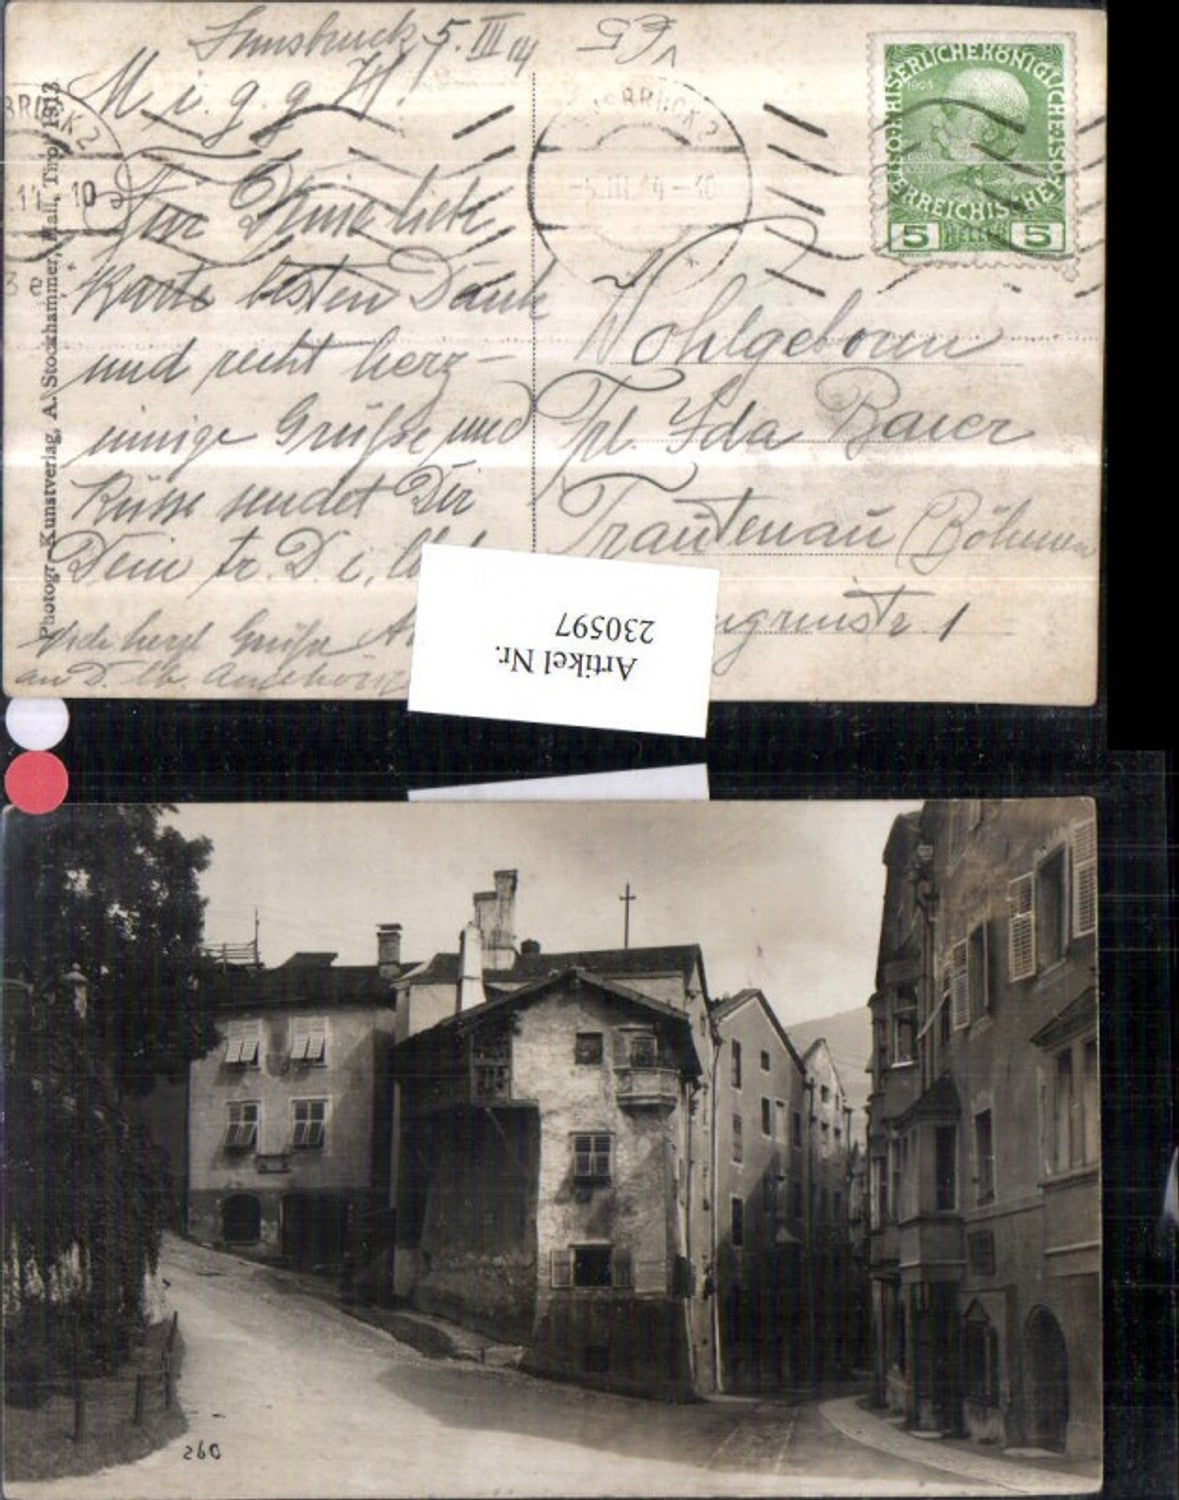 Innsbruck, 5. III 14
M. i. g. g. H.!
Für Deine liebe
Karte besten Dank
und recht herz-
innige Grüße und
Küsse sendet Dir
Dein tr. D. i. lb.
herzl Grüße
an D. lb. Angehörig
Photogr. Kunstverlag, A. Stockhammer, Hall, Tirol 1913
BRUCK 2
10
INNSBRUCK 2
-5.III.14-
KAISERLICHEKÖNIGLICHE
ÖSTERREICHISCHE
5 HELLER 5
Wohlgeboren
Frl. Ida Baier
Trautenau (Böhmen
str. 1
Artikel Nr.
230597
260